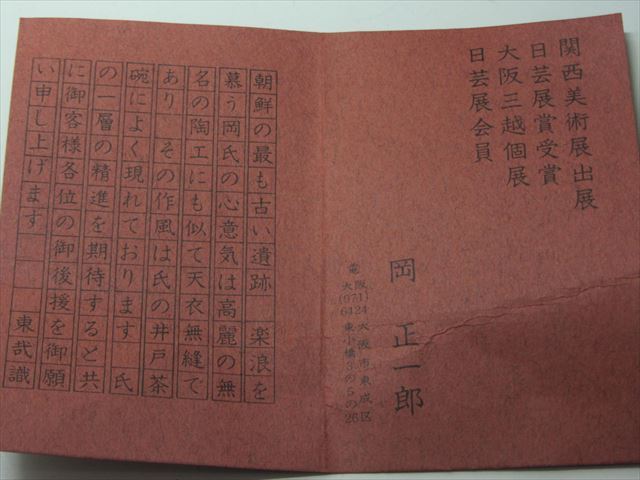 関西美術展出展
日芸展賞受賞
大阪三越個展
日芸展会員
岡 正一郎
大阪市東成区
東小橋3の5の26
電大阪(971)6424
朝鮮の最も古い遺跡 楽浪を
慕う岡氏の心意気は高麗の無
名の陶工にも似て天衣無縫で
あり その作風は氏の井戸茶
碗によく現れております 氏
の一層の精進を期待すると共
に御客様各位の御後援を御願
い申し上げます 東哉識